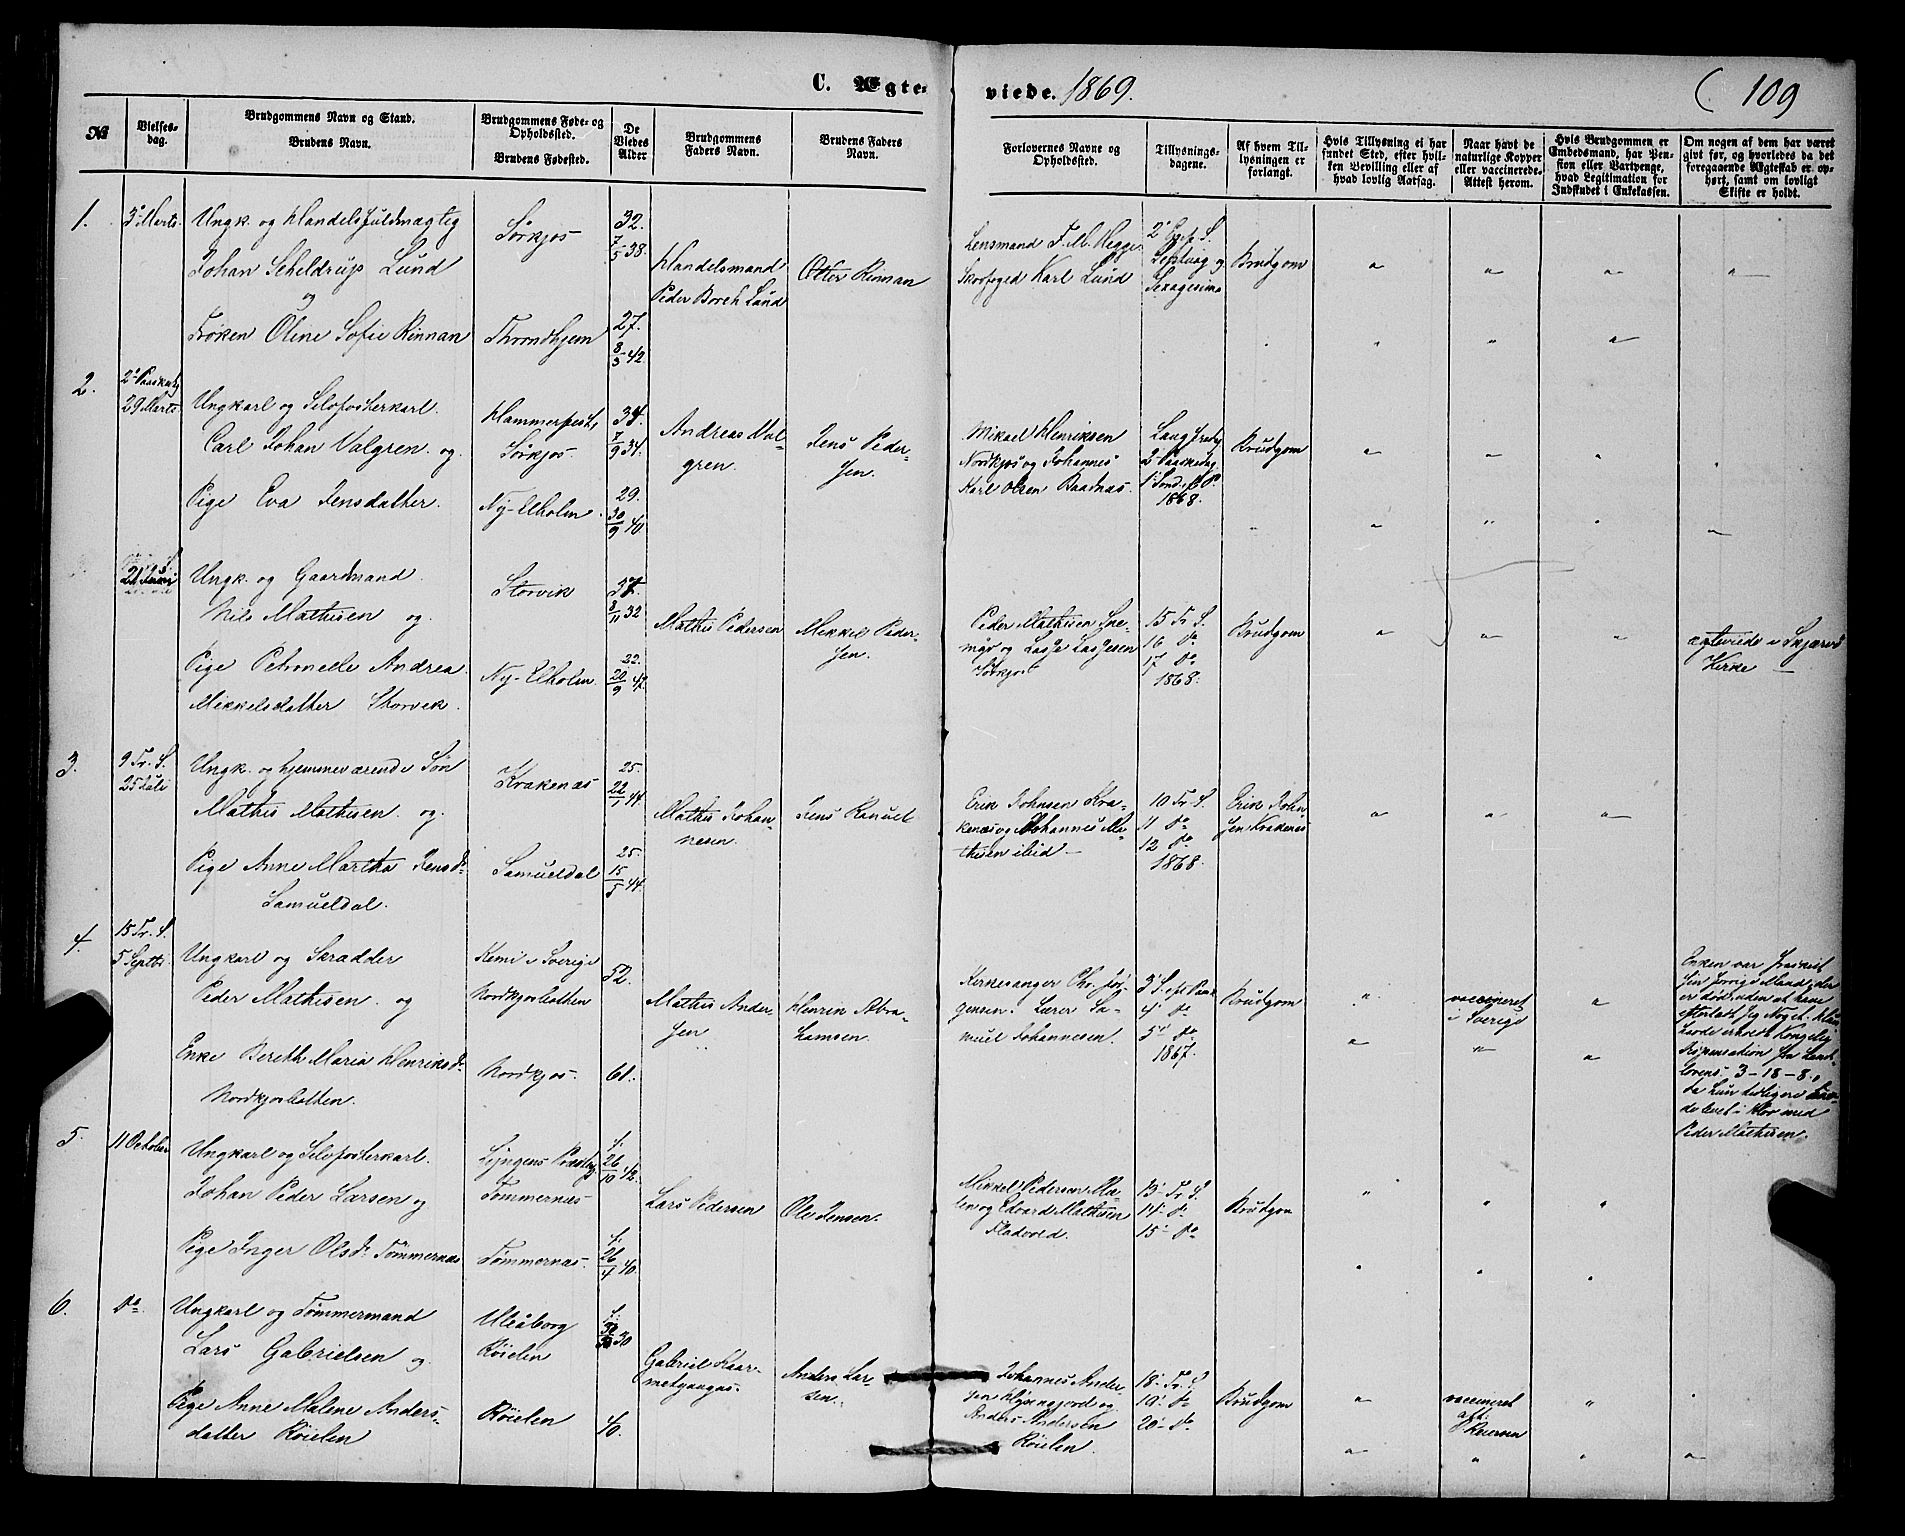 C. Ægte-
viede. 1869.
109
No
Vielses-
dag.
Brudgommens Navn og Stand.
Brudens Navn.
Brudgommens Føde- og
Opholdssted.
Brudens Fødested.
De
Viedes
Alder
Brudgommens
Faders Navn.
Brudens Faders
Navn.
Forlovernes Navne og
Opholdssted.
Tillysnings-
dagene.
Af hvem Til-
lysningen er
forlangt.
Hvis Tillysning ei har
fundet Sted, efter hvil-
ken Bevilling eller af
hvad lovlig Aarsag.
Naar havt de
naturlige Kopper
eller vaccinerede-
Attest herom.
Hvis Brudgommen er
Embedsmand, har Pen-
sion eller Vartpenge,
hvad Legitimation for
Indskudet i Enkekassen.
Om nogen af dem har været
givt før, og hvorledes da det
foregaaende Ægteskab er op-
hørt, samt om lovligt
Skifte er holdt.
1.
3 Marts
Ungk. og Handelsfuldmægtig
Johan Scheldrup Lund
og
Frøken Oline Sofie Rinnan
Sørkjos
Throndhjem
32.
7/5 38.
27.
8/3 42
Handelsmand
Peder Borch Lund
Otter Rinnan
Lensmand F. M. Hegge
Skovfoged Karl Lund
Septuag og
Sexagesima
Brudgom
2.
2 Paaskedg
29 Marts
Ungkarl og Selvfosterkarl.
Carl Johan Valgren. og
Pige Eva Jensdatter.
Hammerfest,
Sørkjos.
Ny-Elholm.
34.
7/9 34.
29.
30/9 40.
Andreas Val-
gren.
Jens Peder-
sen.
Mikael Henriksen
Nordkjos og Johannes
Karl Olsen Baadnæs.
Langfredg
2 Paaskedag
1 Sønd. ef. P.
1868.
Brudgom
Ungk. og Gaardmand.
Nils Mathisen og
Pige Petronelle Andrea
Mikkelsdatter Storvik.
Storvik
Ny-Elholm.
37.
8/11 32
22.
20/9 47.
Mathis Pedersen
Mikkel Peder-
sen.
Peder Mathisen
og Lasse Lassesen
Sørkjos
15 Tr. S.
16 do
17 do
1868.
Brudgom
ægteviede i Skjærvø
Kirke —
3.
9 Tr. S.
25 Juli
Ungk. og hjemmeværende Søn
Mathis Mathisen. og
Pige Anne Martha Jensdr
Samueldal.
Krakenæs
Samueldal
25.
22/1 44.
25.
15/5 44.
Mathis Johan-
nesen.
Jens Kanuel
Erik Johnsen Kra-
kenæs og Johannes Ma-
thisen ibid —
10 Tr. S.
11 do
12 do
1868.
Erik John-
sen Krakenæs
4.
15 Tr. S.
5 Septbr.
Ungkarl og Skrædder
Peder Mathisen. og
Enke Bereth Maria Henriksdr
Nordkjosbotten.
Kemi i Sverige
Nordkjosbotten
Nordkjos.
52.
61.
Mathis Ander-
sen
Henrik Abra-
hamsen.
Kirkesanger Chr. Jør-
gensen. Lærer Sa-
muel Johannesen.
3 S. eft. Paask
4 do
5 do
1867.
Brudgom
vaccineret
i Sverige
Enken var fraskilt
sin forrige Mand, der
er død uden at have
efterladt sig Noget. Hun
havde erholdt Kongelig
Dispensation fra Land-
lovens 3-18-8,
da hun tidligere havde
levet i Hor med
Peder Mathisen.
5.
11 October
Ungkarl og Selvfosterkarl.
Johan Peder Larsen og
Pige Inger Olsdr Tømmernæs
Lyngens Præstegj
Tømmernæs
Tømmernæs.
f.
26/10 42.
f.
26/4 40.
Lars Pedersen
Ole Jensen.
Mikkel Pedersen Ma-
len og Edvard Mathisen
13 Tr. S.
14 do
15 do
Brudgom
6.
do
Ungkarl og Tømmermand
Lars Gabrielsen og
Pige Anne Malene Anders-
datter Røielen
Uleåborg
Røielen
Røielen
40.
Gabriel Kaar-
metgangas.
Anders Lar-
sen.
Johannes Ander-
sen og
Anders Andersen
Røielen.
18 Tr. S.
19 do
20 do
Brudgom
vaccineret
att.